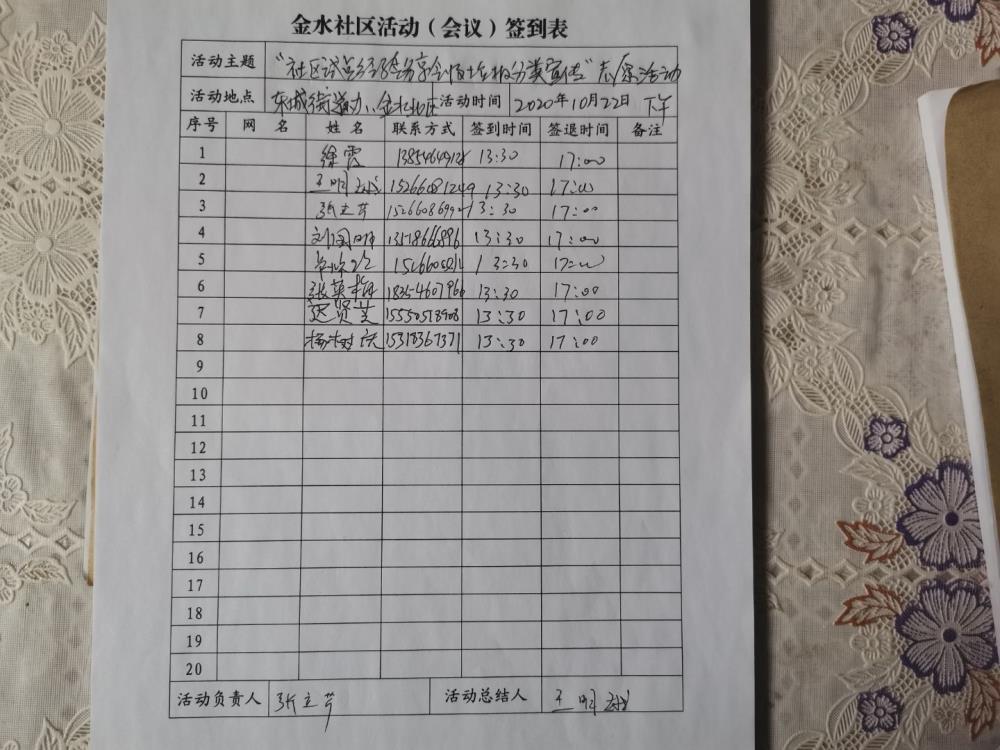 金水社区活动（会议）签到表
活动主题 “社区 垃圾分类宣传”志愿活动
活动地点 东城街道办、金水社区 活动时间 2020年10月22日 下午
序号 网 名 姓 名 联系方式 签到时间 签退时间 备注
1 徐霞 13:30 17:00
2 王明 15266081249 13:30 17:00
3 张立芹 13:30 17:00
4 刘国 13:30 17:00
5 13:30 17:00
6 张英梅 18354607966 13:30 17:00
7 贤芝 15550518908 13:30 17:00
8 杨树庆 15318367371 13:30 17:00
9
10
11
12
13
14
15
16
17
18
19
20
活动负责人 张立芹 活动总结人 王明